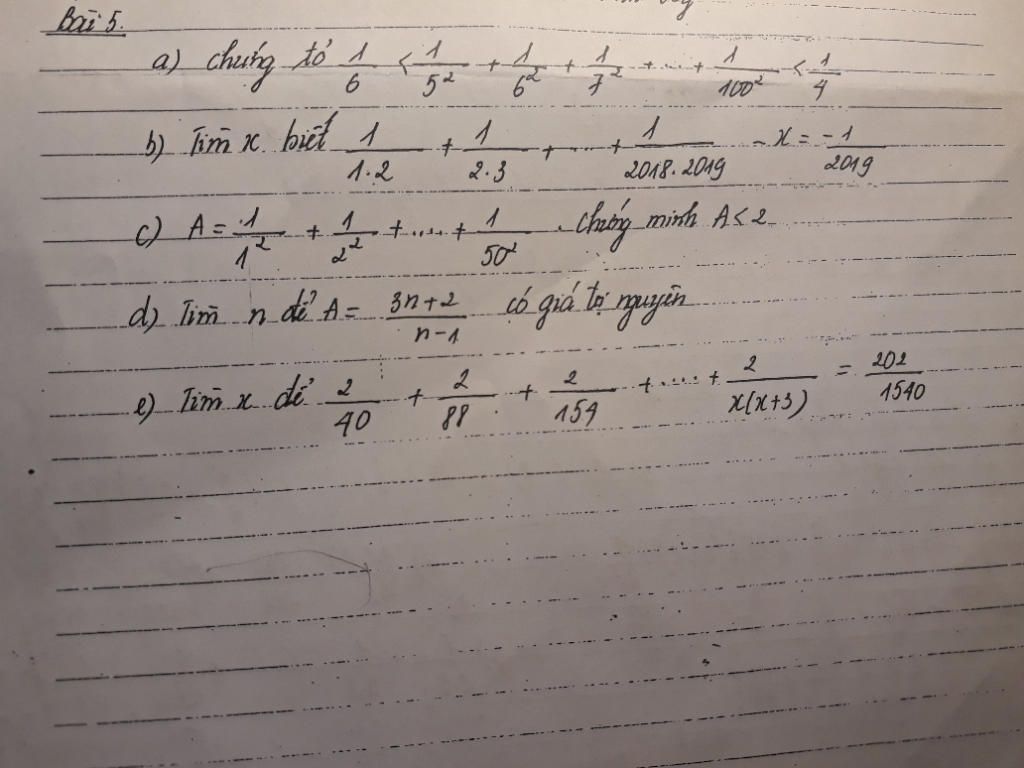 Bài 5.
a) chứng tỏ 1/6 < 1/5² + 1/6² + 1/7² + ... + 1/100² < 1/4
b) Tìm x biết 1/1.2 + 1/2.3 + ... + 1/2018.2019 - x = -1/2019
c) A = 1/1² + 1/2² + .... + 1/50². Chứng minh A < 2
d) Tìm n để A = 3n+2/n-1 có giá trị nguyên
e) Tìm x để 2/40 + 2/88 + 2/154 + .... + 2/x(x+3) = 202/1540